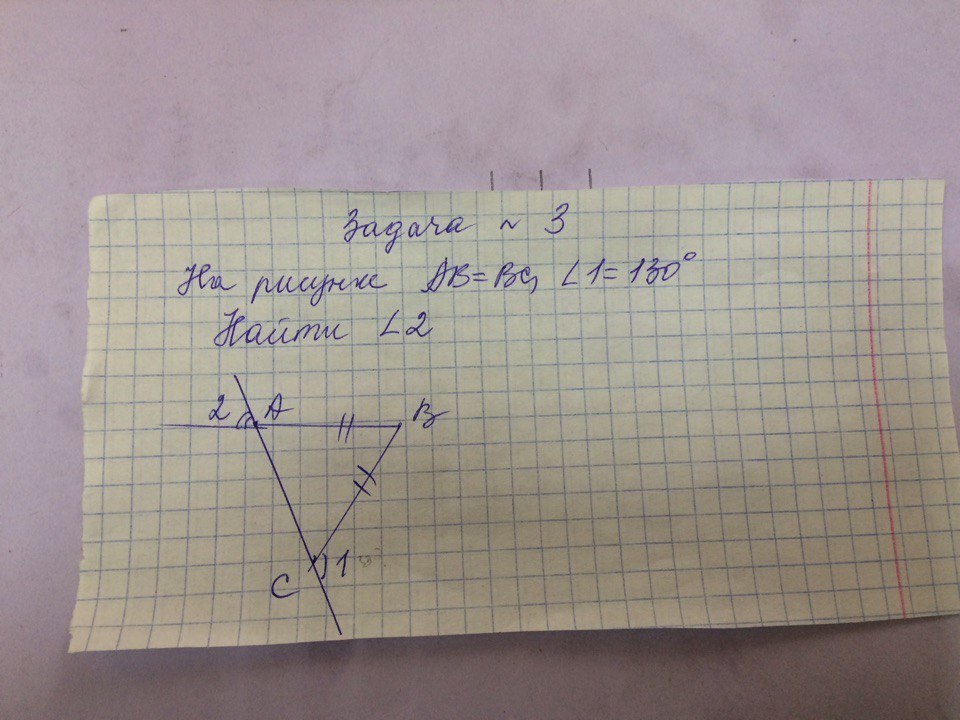 Задача ~ 3
На рисунке AB=BC, ∠1=130°
Найти ∠2
2 A B
C 1